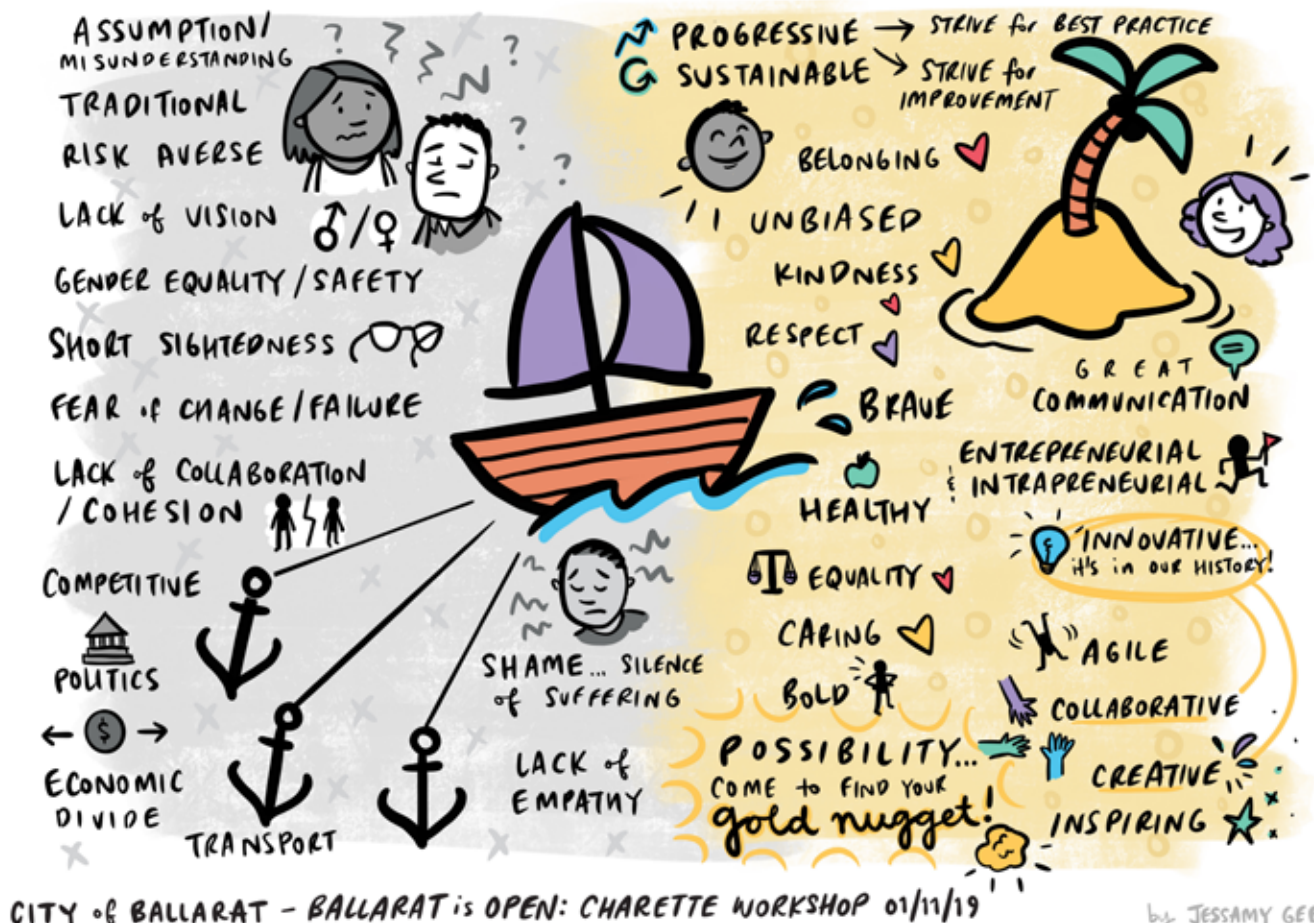 ASSUMPTION/
MISUNDERSTANDING
TRADITIONAL
RISK AVERSE
LACK of VISION
♂/♀
GENDER EQUALITY/SAFETY
SHORT SIGHTEDNESS
FEAR of CHANGE/FAILURE
LACK of COLLABORATION
/COHESION
COMPETITIVE
POLITICS
$
ECONOMIC
DIVIDE
TRANSPORT
SHAME... SILENCE
of SUFFERING
LACK of
EMPATHY
PROGRESSIVE → STRIVE for BEST PRACTICE
SUSTAINABLE → STRIVE for
IMPROVEMENT
BELONGING
UNBIASED
KINDNESS
RESPECT
BRAVE
HEALTHY
EQUALITY
CARING
BOLD
POSSIBILITY...
COME to FIND YOUR
gold nugget!
GREAT
COMMUNICATION
ENTREPRENEURIAL
& INTRAPRENEURIAL
INNOVATIVE...
it's in OUR HISTORY!
AGILE
COLLABORATIVE
CREATIVE
INSPIRING
CITY of BALLARAT - BALLARAT is OPEN: CHARETTE WORKSHOP 01/11/19
by JESSAMY